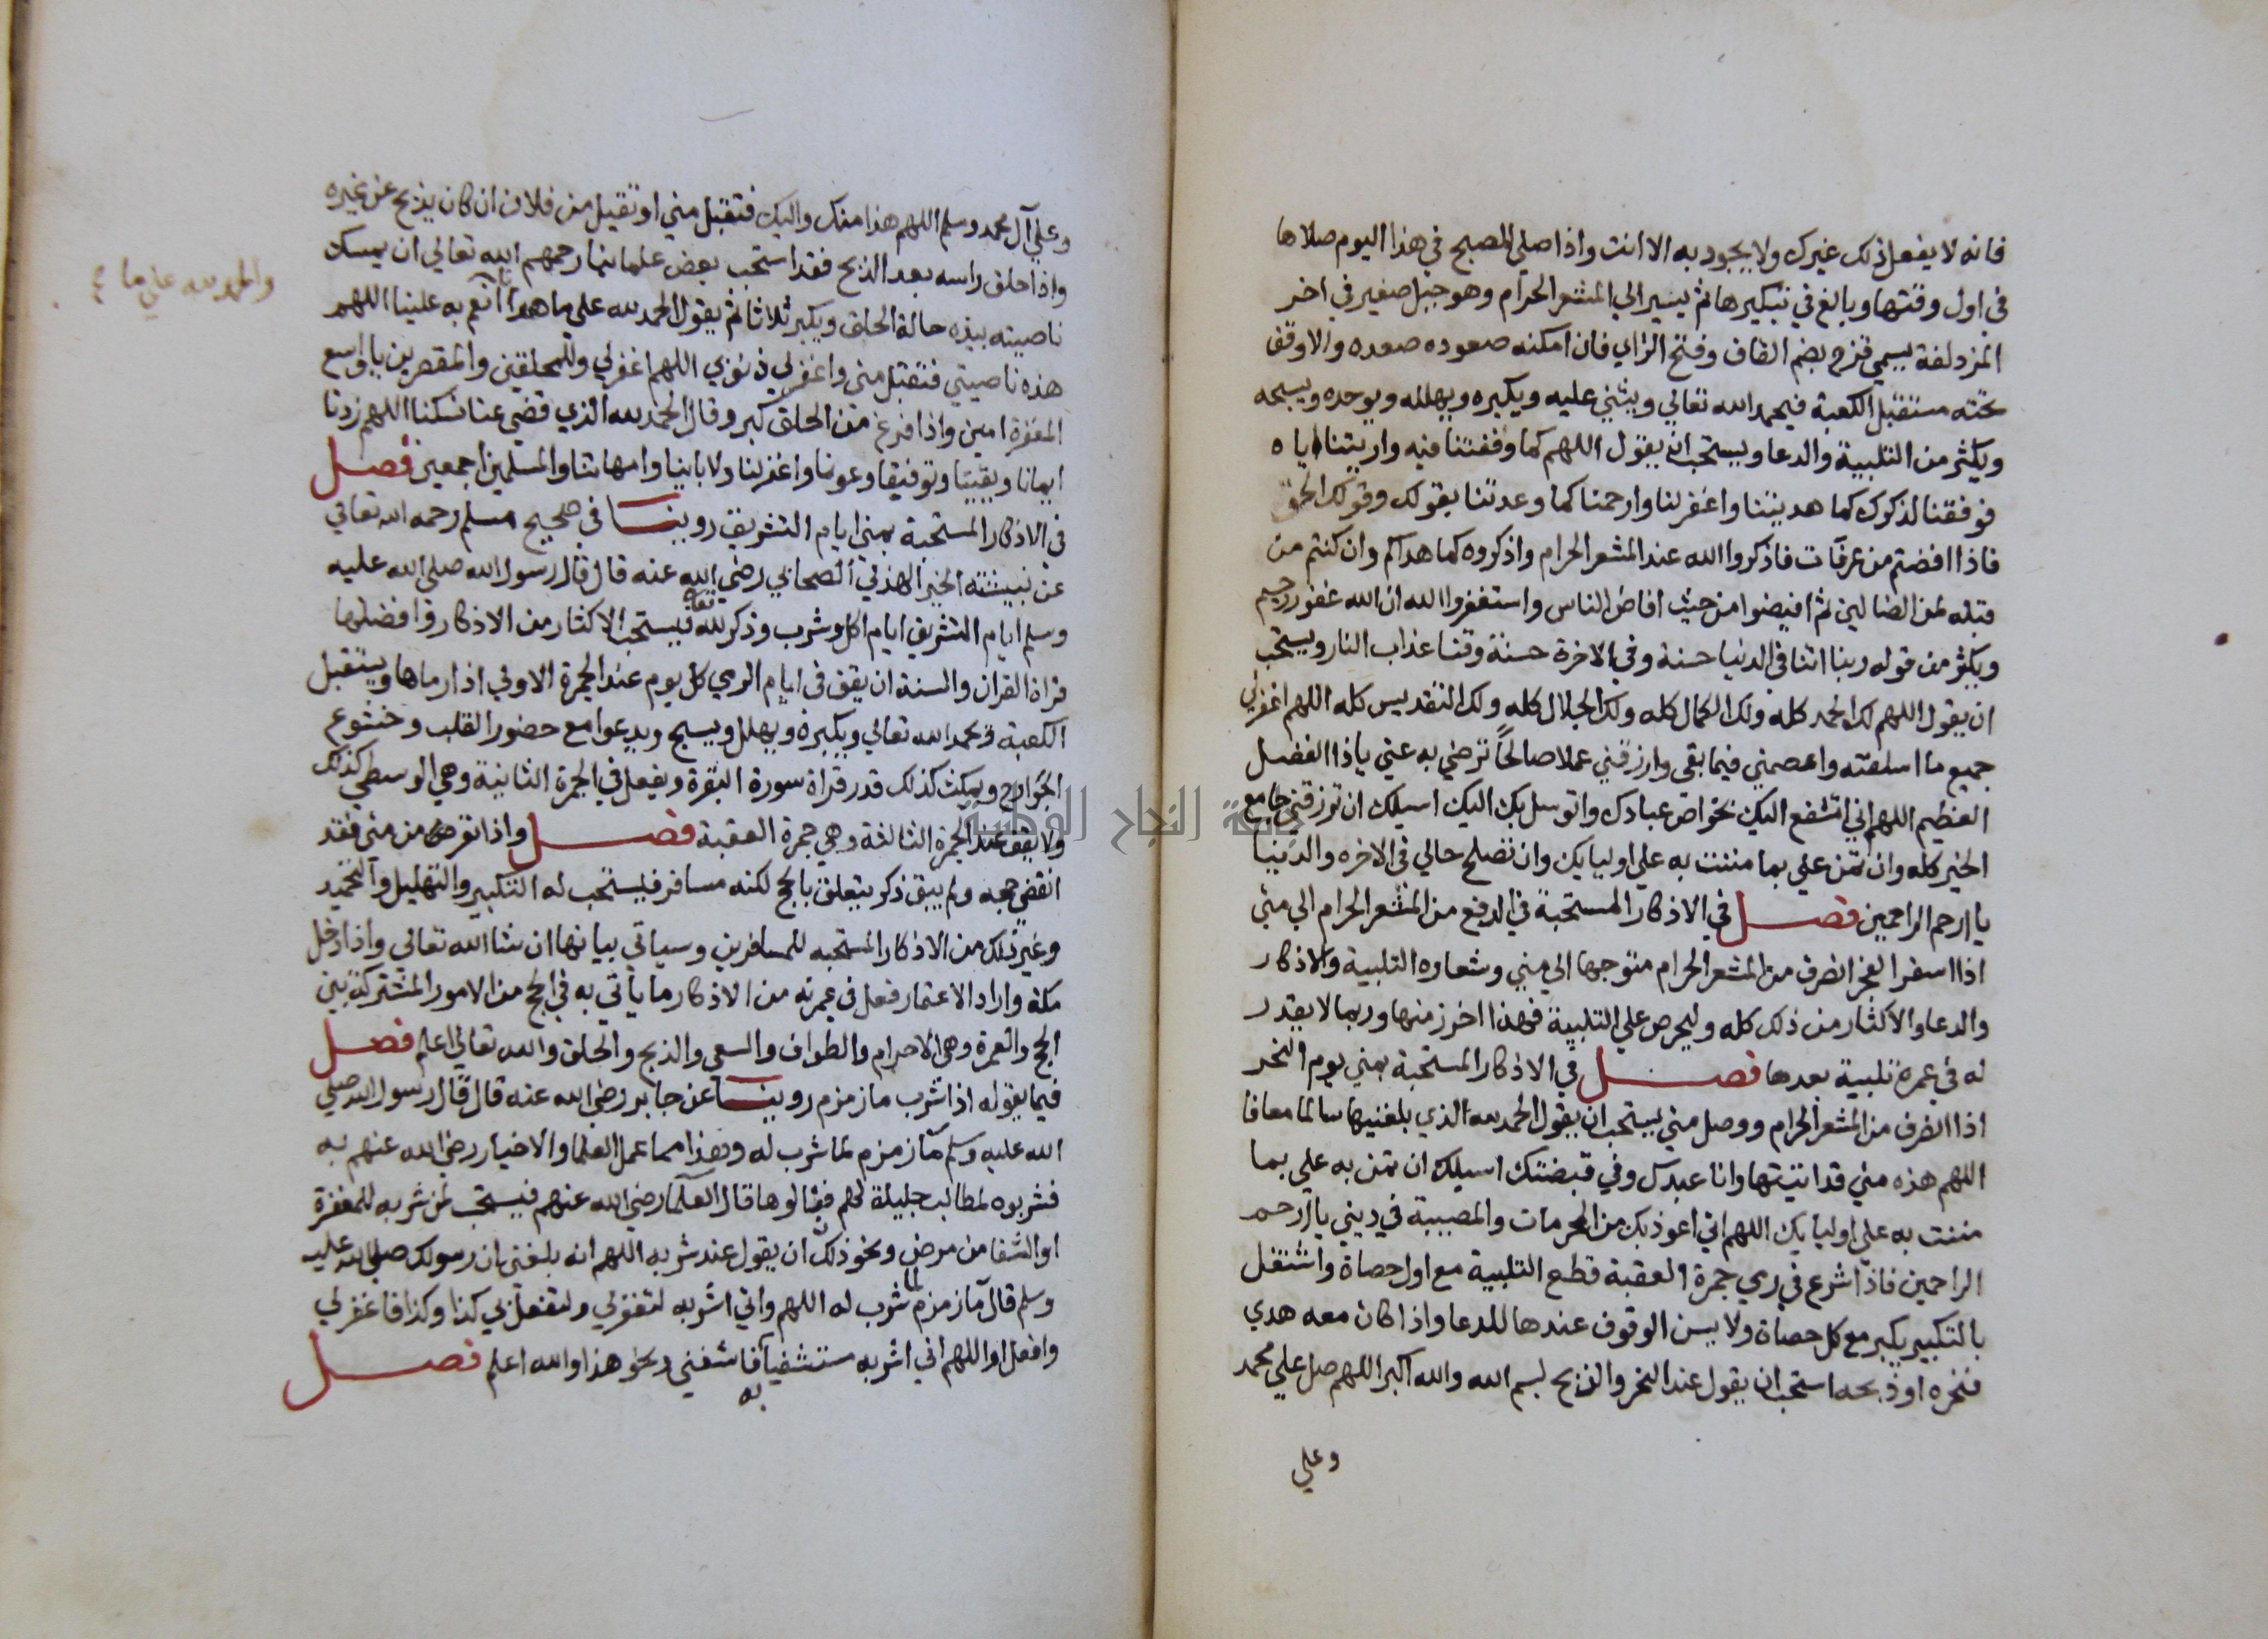 فانه لا يفعل ذلك غيرك ولا يجود به الا انت واذا صلي الصبح في هذا اليوم صلاها
في اول وقتها وبالغ في تبكيرها ثم يسير الي المشعر الحرام وهو جبل صغير في اخر
المزدلفة يسمي قزح بضم القاف وفتح الزاي فان امكنه صعوده صعده والا وقف
تحته مستقبل الكعبة فيحمد الله تعالي ويثني عليه ويكبره ويهلله ويوحده ويسبحه
ويكثر من التلبية والدعا ويستحب ان يقول اللهم كما وقفتنا فيه واريتنا اياه
فوفقنا لذكرك كما هديتنا واغفر لنا وارحمنا كما وعدتنا بقولك وقولك الحق
فاذا افضتم من عرفات فاذكروا الله عند المشعر الحرام واذكروه كما هداكم وان كنتم من
قبله لمن الضالين ثم افيضوا من حيث افاض الناس واستغفروا الله ان الله غفور رحيم
ويكثر من قوله ربنا اتنا في الدنيا حسنة وفي الاخرة حسنة وقنا عذاب النار ويستحب
ان يقول اللهم لك الحمد كله ولك الكمال كله ولك الجلال كله ولك التقديس كله اللهم اغفر لي
جميع ما اسلفته واعصمني فيما بقي وارزقني عملا صالحاً ترضي به عني ياذا الفضل
العظيم اللهم اني اتشفع اليك بخواص عبادك واتوسل بك اليك اسيلك ان ترزقني جوامع
الخير كله وان تمن علي بما مننت به علي اوليايك وان تصلح حالي في الاخره والدنيا
يا ارحم الراحمين فصل في الاذكار المستحبة في الدفع من المشعر الحرام الي مني
اذا اسفر الفجر انصرف من المشعر الحرام متوجها الي مني وشعاره التلبية والاذكار
والدعا والاكثار من ذلك كله وليحرص علي التلبية فهذا اخر زمنها وربما لا يقدر
له في عمره تلبية بعدها فصل في الاذكار المستحبة بمني يوم النحر
اذا انصرف من المشعر الحرام ووصل مني يستحب ان يقول الحمد لله الذي بلغنيها سالما معافا
اللهم هذه مني قد اتيتها وانا عبدك وفي قبضتك اسيلك ان تمن به علي بما
مننت به علي اوليايك اللهم اني اعوذ بك من الحرمات والمصيبة في ديني يا ارحم
الراحمين فاذا شرع في رمي جمرة العقبة قطع التلبية مع اول حصاة واشتغل
بالتكبير يكبر مع كل حصاة ولا يسن الوقوف عندها للدعا واذا كان معه هدي
فنحره او ذبحه استحب ان يقول عند النحر والذبح بسم الله والله اكبر اللهم صل علي محمد
وعلي
وعلي آل محمد وسلم اللهم هذا منك واليك فتقبل مني او تقبل من فلان ان كان يذبح عن غيره
واذا حلق راسه بعد الذبح فقد استحب بعض علماينا رحمهم الله تعالي ان يمسك
ناصيته بيده حالة الحلق ويكبر ثلاثا ثم يقول الحمد لله علي ما هدانا انعم به علينا اللهم
والحمد لله علي ما
هذه ناصيتي فتقبل مني واغفر لي ذنوبي اللهم اغفر لي وللمحلقين والمقصرين يا واسع
المغفرة امين واذا فرغ من الحلق كبر وقال الحمد لله الذي قضي عنا نسكنا اللهم زدنا
ايمانا ويقينا وتوفيقا وعونا واغفر لنا ولاباينا وامهاتنا والمسلمين اجمعين فصل
في الاذكار المستحبة بمني ايام التشريق روينا في صحيح مسلم رحمه الله تعالي
عن نبيشة الخير الهذلي الصحابي رضي الله عنه قال قال رسول الله صلي الله عليه
وسلم ايام التشريق ايام اكل وشرب وذكر لله تعالي فيستحب الاكثار من الاذكار وافضلها
قراة القران والسنة ان يقف في ايام الرمي كل يوم عند الجمرة الاولي اذا رماها ويستقبل
الكعبة ويحمد الله تعالي ويكبره ويهلل ويسبح ويدعوا مع حضور القلب وخشوع
الجوارح ويمكث كذلك قدر قراة سورة البقرة ويفعل في الجمرة الثانية وهي الوسطي كذلك
ولا يقف عند الجمرة الثالثة وهي جمرة العقبة فصل واذا نفر من مني فقد
انقضي حجه ولم يبق ذكر يتعلق بالحج لكنه مسافر فيستحب له التكبير والتهليل والتحميد
وغير ذلك من الاذكار المستحبه للمسافرين وسياتي بيانها ان شا الله تعالي واذا دخل
مكة واراد الاعتمار فعل في عمرته من الاذكار ما ياتي به في الحج من الامور المشتركة بين
الحج والعمرة وهي الاحرام والطواف والسعي والذبح والحلق والله تعالي اعلم فصل
فيما يقوله اذا شرب ما زمزم روينا عن جابر رضي الله عنه قال قال رسول الله صلي
الله عليه وسلم مآ زمزم لما شرب له وهذا مما عمل العلما والاخيار رضي الله عنهم به
فشربوه لمطالب جليلة لهم فنالوها قال العلما رضي الله عنهم فيستحب لمن شربه للمغفرة
او الشفا من مرض ونحو ذلك ان يقول عند شربه اللهم انه بلغني ان رسولك صلي الله عليه
وسلم قال مآ زمزم لما شرب له اللهم واني اشربه لتغفر لي ولتفعل بي كذا وكذا فاغفر لي
وافعل او اللهم اني اشربه مستشفيا به فاشفني ونحو هذا والله اعلم فصل
جامعة النجاح الوطنية